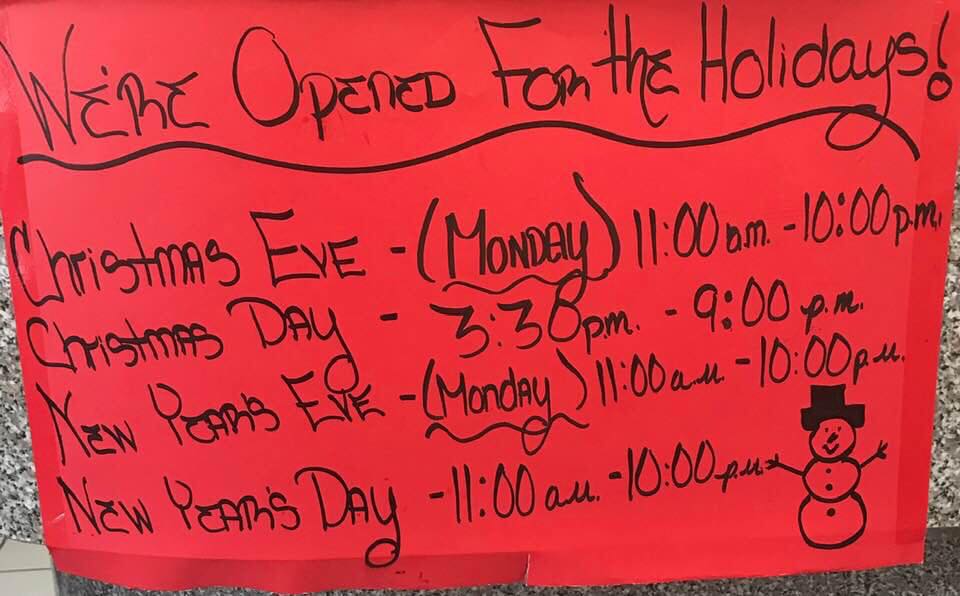 We're Opened For the Holidays!
Christmas Eve - (Monday) 11:00 a.m. - 10:00 p.m.
Christmas Day - 3:30 p.m. - 9:00 p.m.
New Year's Eve - (Monday) 11:00 a.m. - 10:00 p.m.
New Year's Day - 11:00 a.m. - 10:00 p.m.